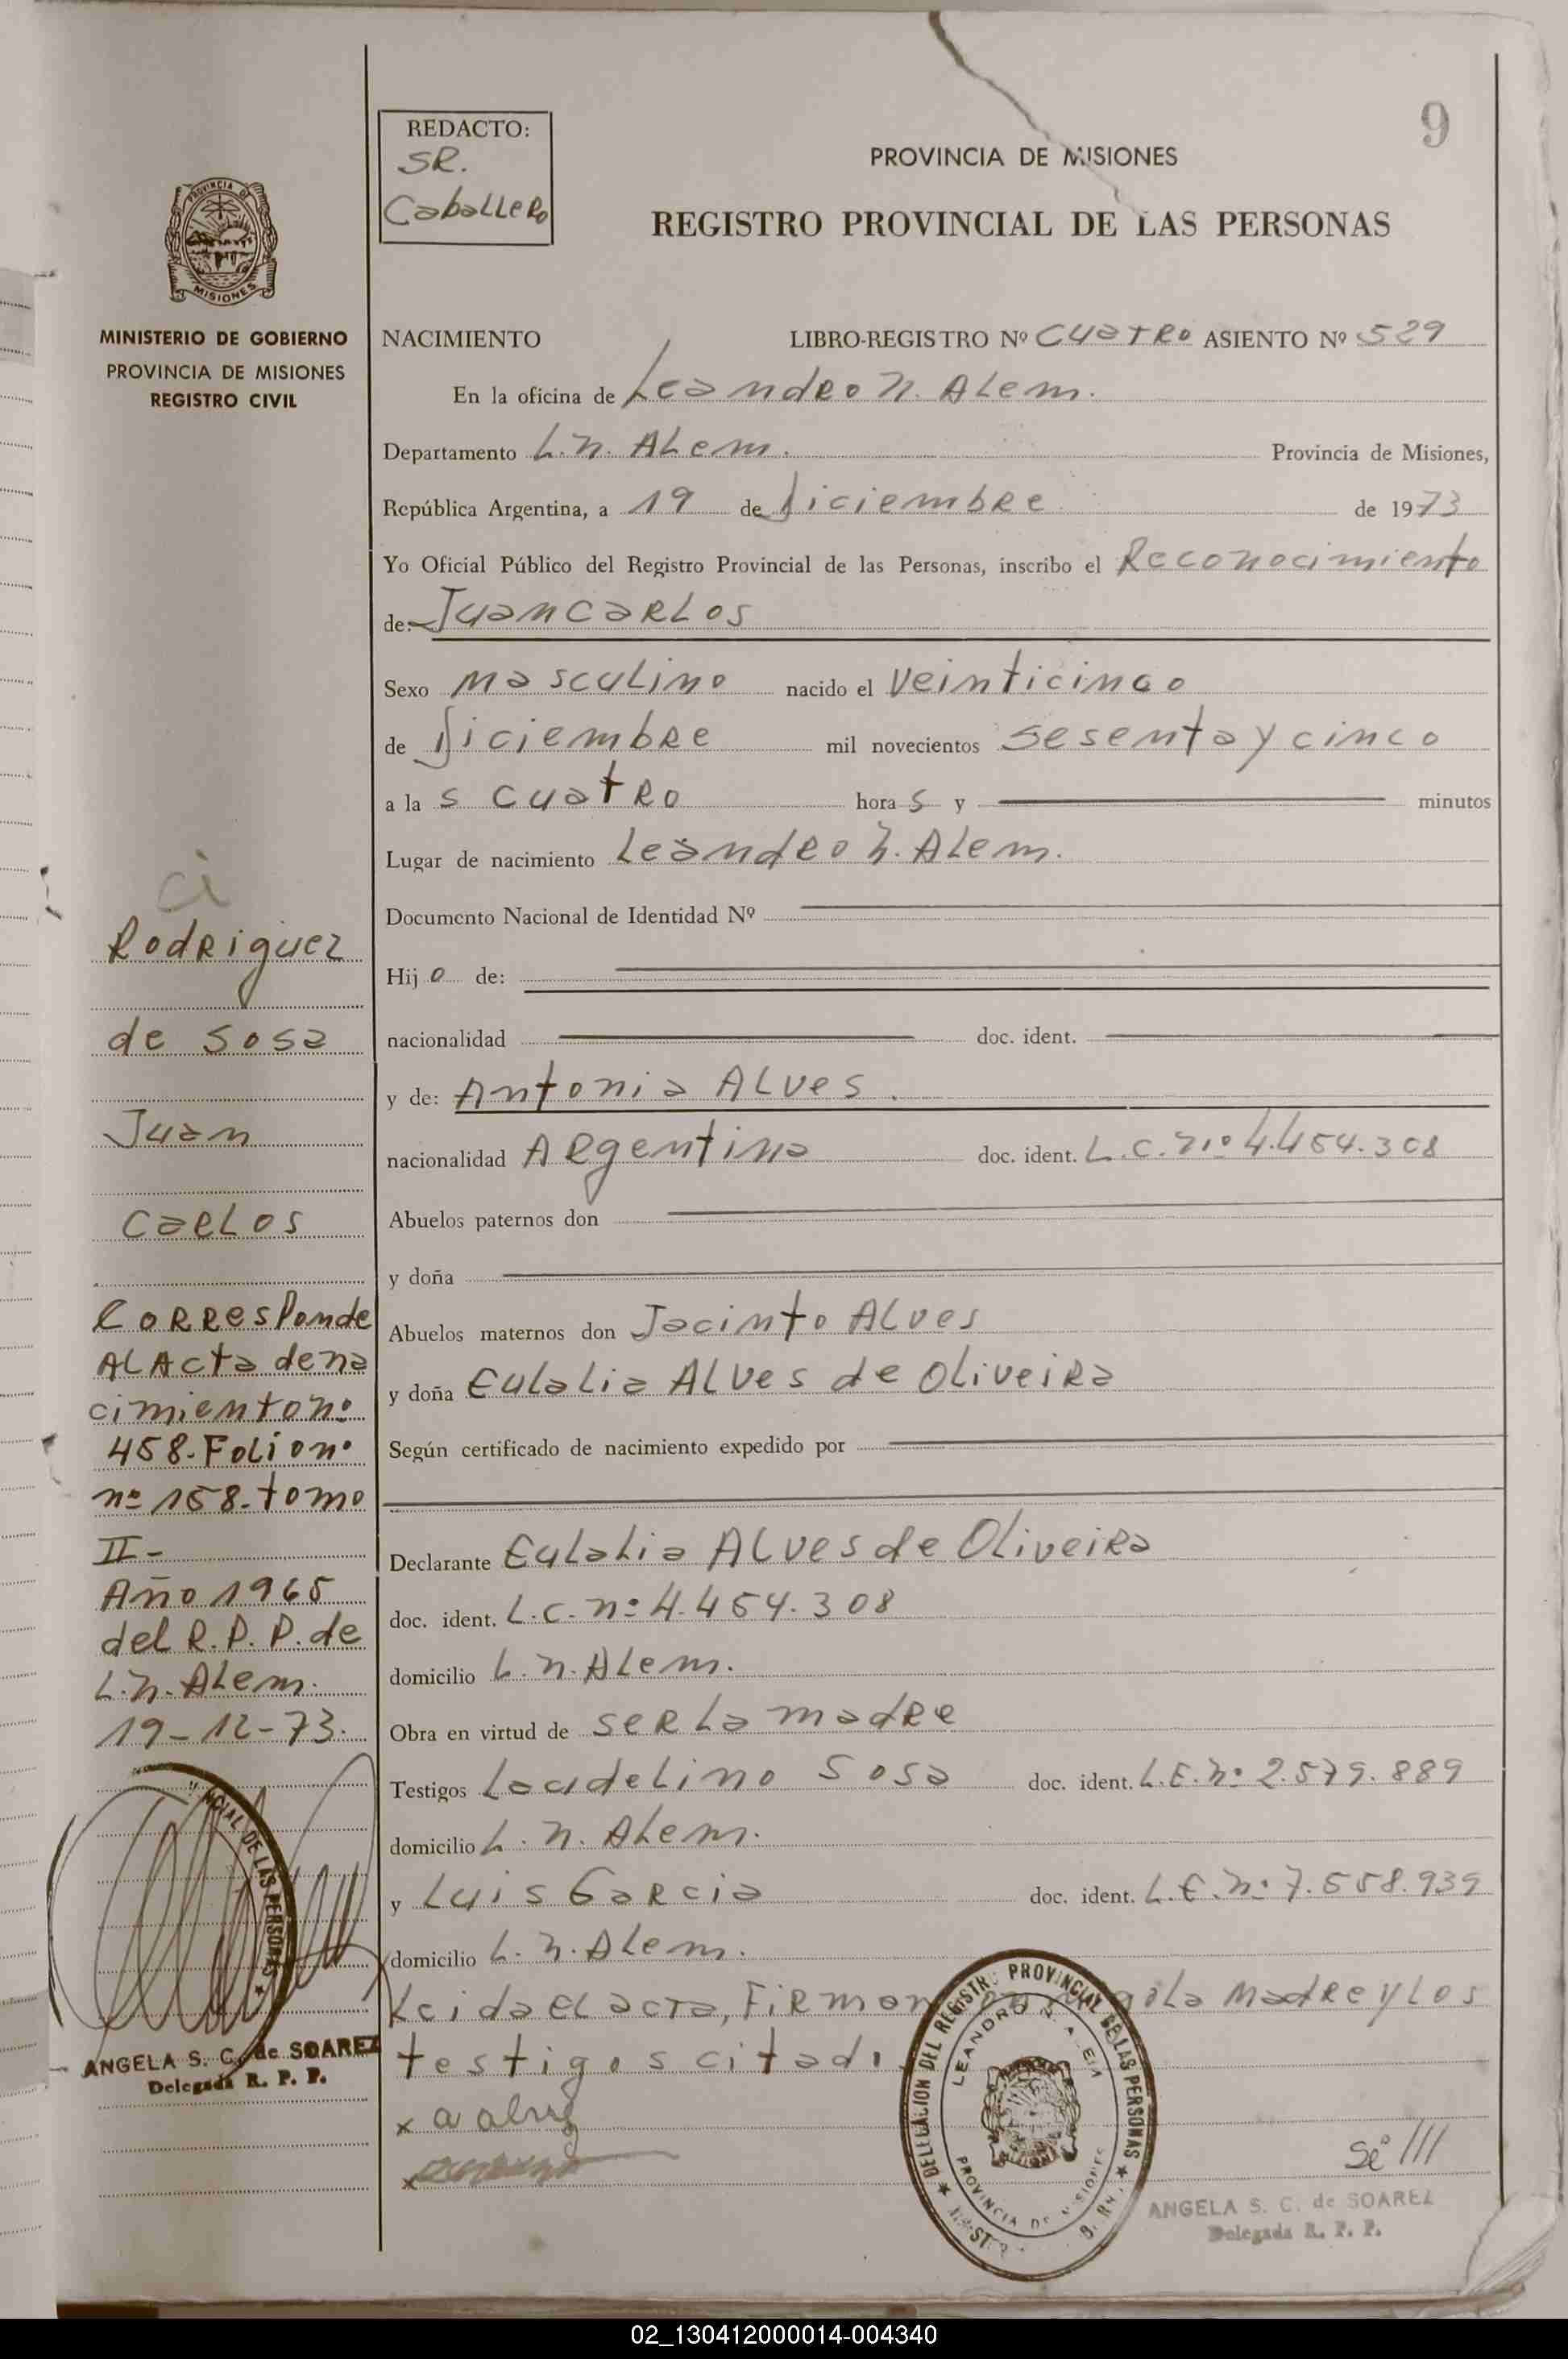 9
REDACTO:
SR.
Caballero
PROVINCIA DE MISIONES
REGISTRO PROVINCIAL DE LAS PERSONAS
PROVINCIA DE
MISIONES
MINISTERIO DE GOBIERNO
PROVINCIA DE MISIONES
REGISTRO CIVIL
NACIMIENTO LIBRO-REGISTRO Nº CUATRO ASIENTO Nº 529
En la oficina de Leandro N. ALem.
Departamento L.N. ALem. Provincia de Misiones,
República Argentina, a 19 de Diciembre de 1973
Yo Oficial Público del Registro Provincial de las Personas, inscribo el Reconocimiento
de: Juan Carlos
Sexo masculino nacido el veinticinco
de Diciembre mil novecientos sesenta y cinco
a la s cuatro hora s y minutos
Lugar de nacimiento Leandro N. Alem.
Documento Nacional de Identidad Nº
Hij o de:
nacionalidad doc. ident.
y de: Antonia ALves.
nacionalidad Argentina doc. ident. L.C. nº 4.454.308
Abuelos paternos don
y doña
Abuelos maternos don Jacinto ALves
y doña Eulalia ALves de Oliveira
Según certificado de nacimiento expedido por
Declarante Eulalia ALves de Oliveira
doc. ident. L.C. nº 4.454.308
domicilio L.N. Alem.
Obra en virtud de ser la madre
Testigos Sosa doc. ident. L.E. Nº 2.579.889
domicilio L.N. Alem.
y Luis Garcia doc. ident. L.E. Nº 7.558.939
domicilio L.N. Alem.
Leida el acta, Firman la madre y los
testigos
x a
x
ci
Rodriguez
de Sosa
Juan
Carlos
Corresponde
AL Acta de na
cimiento nº
458-Folio nº
nº 158-tomo
II-
Año 1965
del R.P.P. de
L.N. ALem.
19-12-73.
CIAL DE LAS PERSONAS
ANGELA S. C. de SOAREZ
Delegada R. P. P.
DELEGACION DEL REGISTRO PROVINCIAL DE LAS PERSONAS
LEANDRO N. ALEM
PROVINCIA DE MISIONES
ANGELA S. C. de SOAREZ
Delegada R. P. P.
02_130412000014-004340